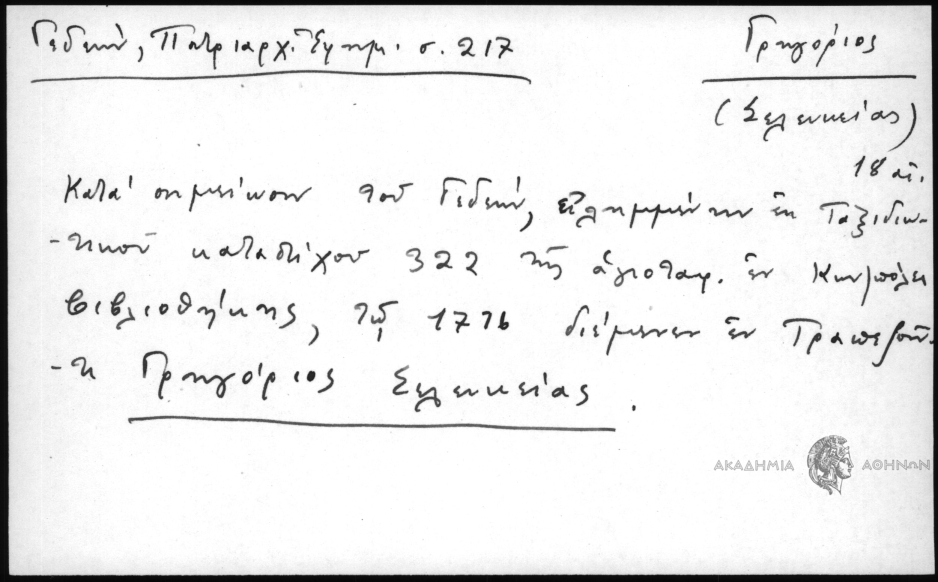 Γεδεών, Πατριαρχ. Ἐφημ. σ. 217
Γρηγόριος
(Σελευκείας)
18 αἰ.
Κατά σημείωσιν τοῦ Γεδεών, εἰλημμένην ἐκ Ταξιδιω-
-τικοῦ καταστίχου 322 τῆς ἁγιοταφ. ἐν Κων/πόλει
βιβλιοθήκης, τῷ 1776 διέμενεν ἐν Τραπεζοῦν-
-τι Γρηγόριος Σελευκείας.
ΑΚΑΔΗΜΙΑ ΑΘΗΝΩΝ